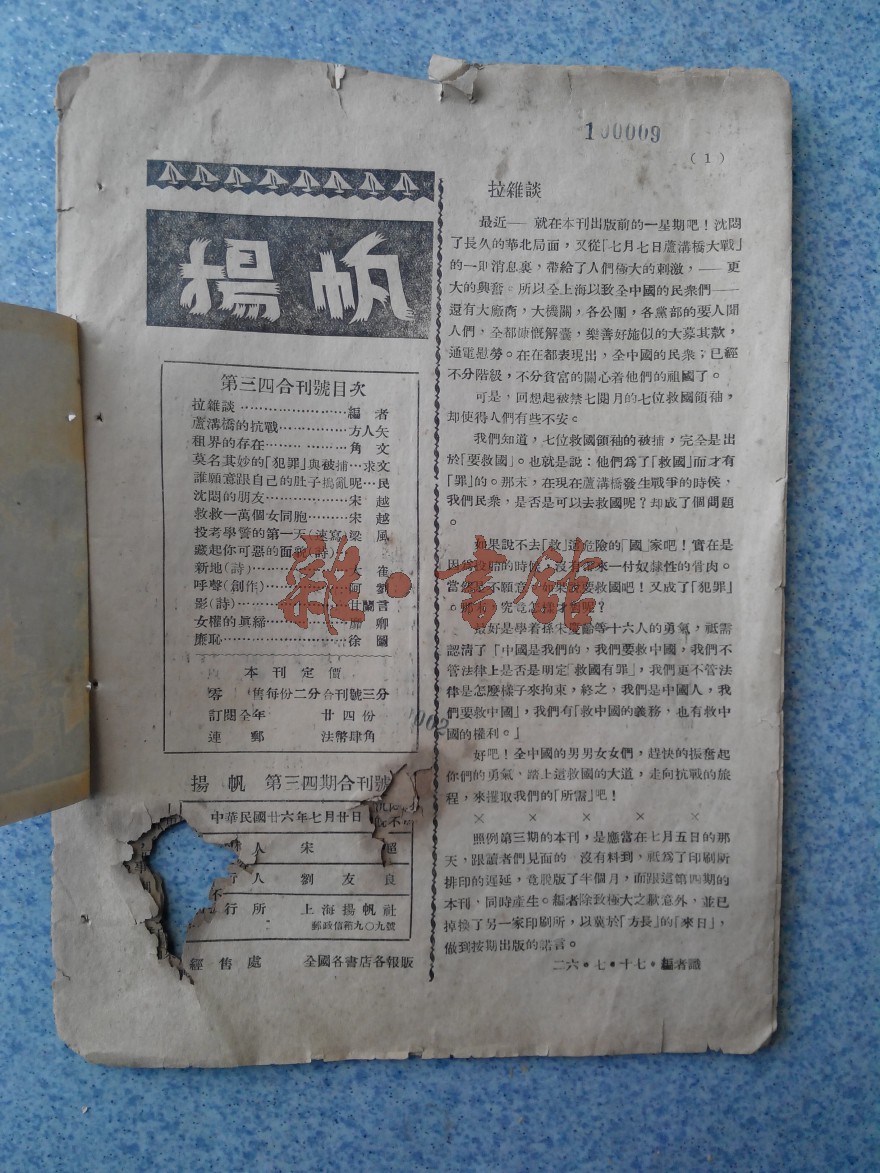 （1）
揚帆
第三四合刊號目次
拉雜談……………………編 者
蘆溝橋的抗戰……………方人矢
租界的存在………………角 文
莫名其妙的「犯罪」與被捕…求文
誰願意跟自己的肚子搗亂呢…民
沈悶的朋友………………宋 越
救救一萬個女同胞………宋 越
投考學警的第一天(速寫)梁 風
藏起你可惡的面
新地(詩)
呼聲(創作)
影(詩)……………………甘蘭言
女權的眞締
廉恥………………………徐
本刊定價
零 售每份二分合刊號三分
訂閱全年 廿四份
連 郵 法幣肆角
揚帆 第三四期合刊號
中華民國廿六年七月廿日
人 宋
行人 劉友良
行所 上海揚帆社
郵政信箱九〇九號
經售處 全國各書店各報販
拉雜談
最近——就在本刊出版前的一星期吧！沈悶
了長久的華北局面，又從「七月七日蘆溝橋大戰」
的一則消息裏，帶給了人們極大的刺激，——更
大的興奮。所以全上海以致全中國的民衆們——
還有大廠商，大機關，各公團，各黨部的要人聞
人們，全都慷慨解囊，樂善好施似的大募其款，
通電慰勞。在在都表現出，全中國的民衆；已經
不分階級，不分貧富的關心着他們的祖國了。
可是，回想起被禁七閱月的七位救國領袖，
却使得人們有些不安。
我們知道，七位救國領袖的被捕，完全是出
於「要救國」。也就是說：他們爲了「救國」而才有
「罪」的。那末，在現在蘆溝橋發生戰爭的時候，
我們民衆，是否是可以去救國呢？却成了個問題
。
如果說不去「救」這危險的「國」家吧！實在是
因爲投胎的時候，沒有帶來一付奴隸性的骨肉。
當然是不願意。如果說要救國吧！又成了「犯罪」
。那末，究竟怎樣才對呢？
最好是學着孫宋慶齡等十六人的勇氣，祇需
認清了「中國是我們的，我們要救中國，我們不
管法律上是否是明定「救國有罪」，我們更不管法
律是怎麼樣子來拘束，終之，我們是中國人，我
們要救中國」，我們有「救中國的義務，也有救中
國的權利。」
好吧！全中國的男男女女們，趕快的振奮起
你們的勇氣，踏上這救國的大道，走向抗戰的旅
程，來攫取我們的「所需」吧！
× × × × ×
照例第三期的本刊，是應當在七月五日的那
天，跟讀者們見面的。沒有料到，祇爲了印刷所
排印的遲延，竟脫版了半個月，而跟這第四期的
本刊，同時產生。編者除致極大之歉意外，並已
掉換了另一家印刷所，以冀於「方長」的「來日」，
做到按期出版的諾言。
二六・七・十七・編者識
雜・書館